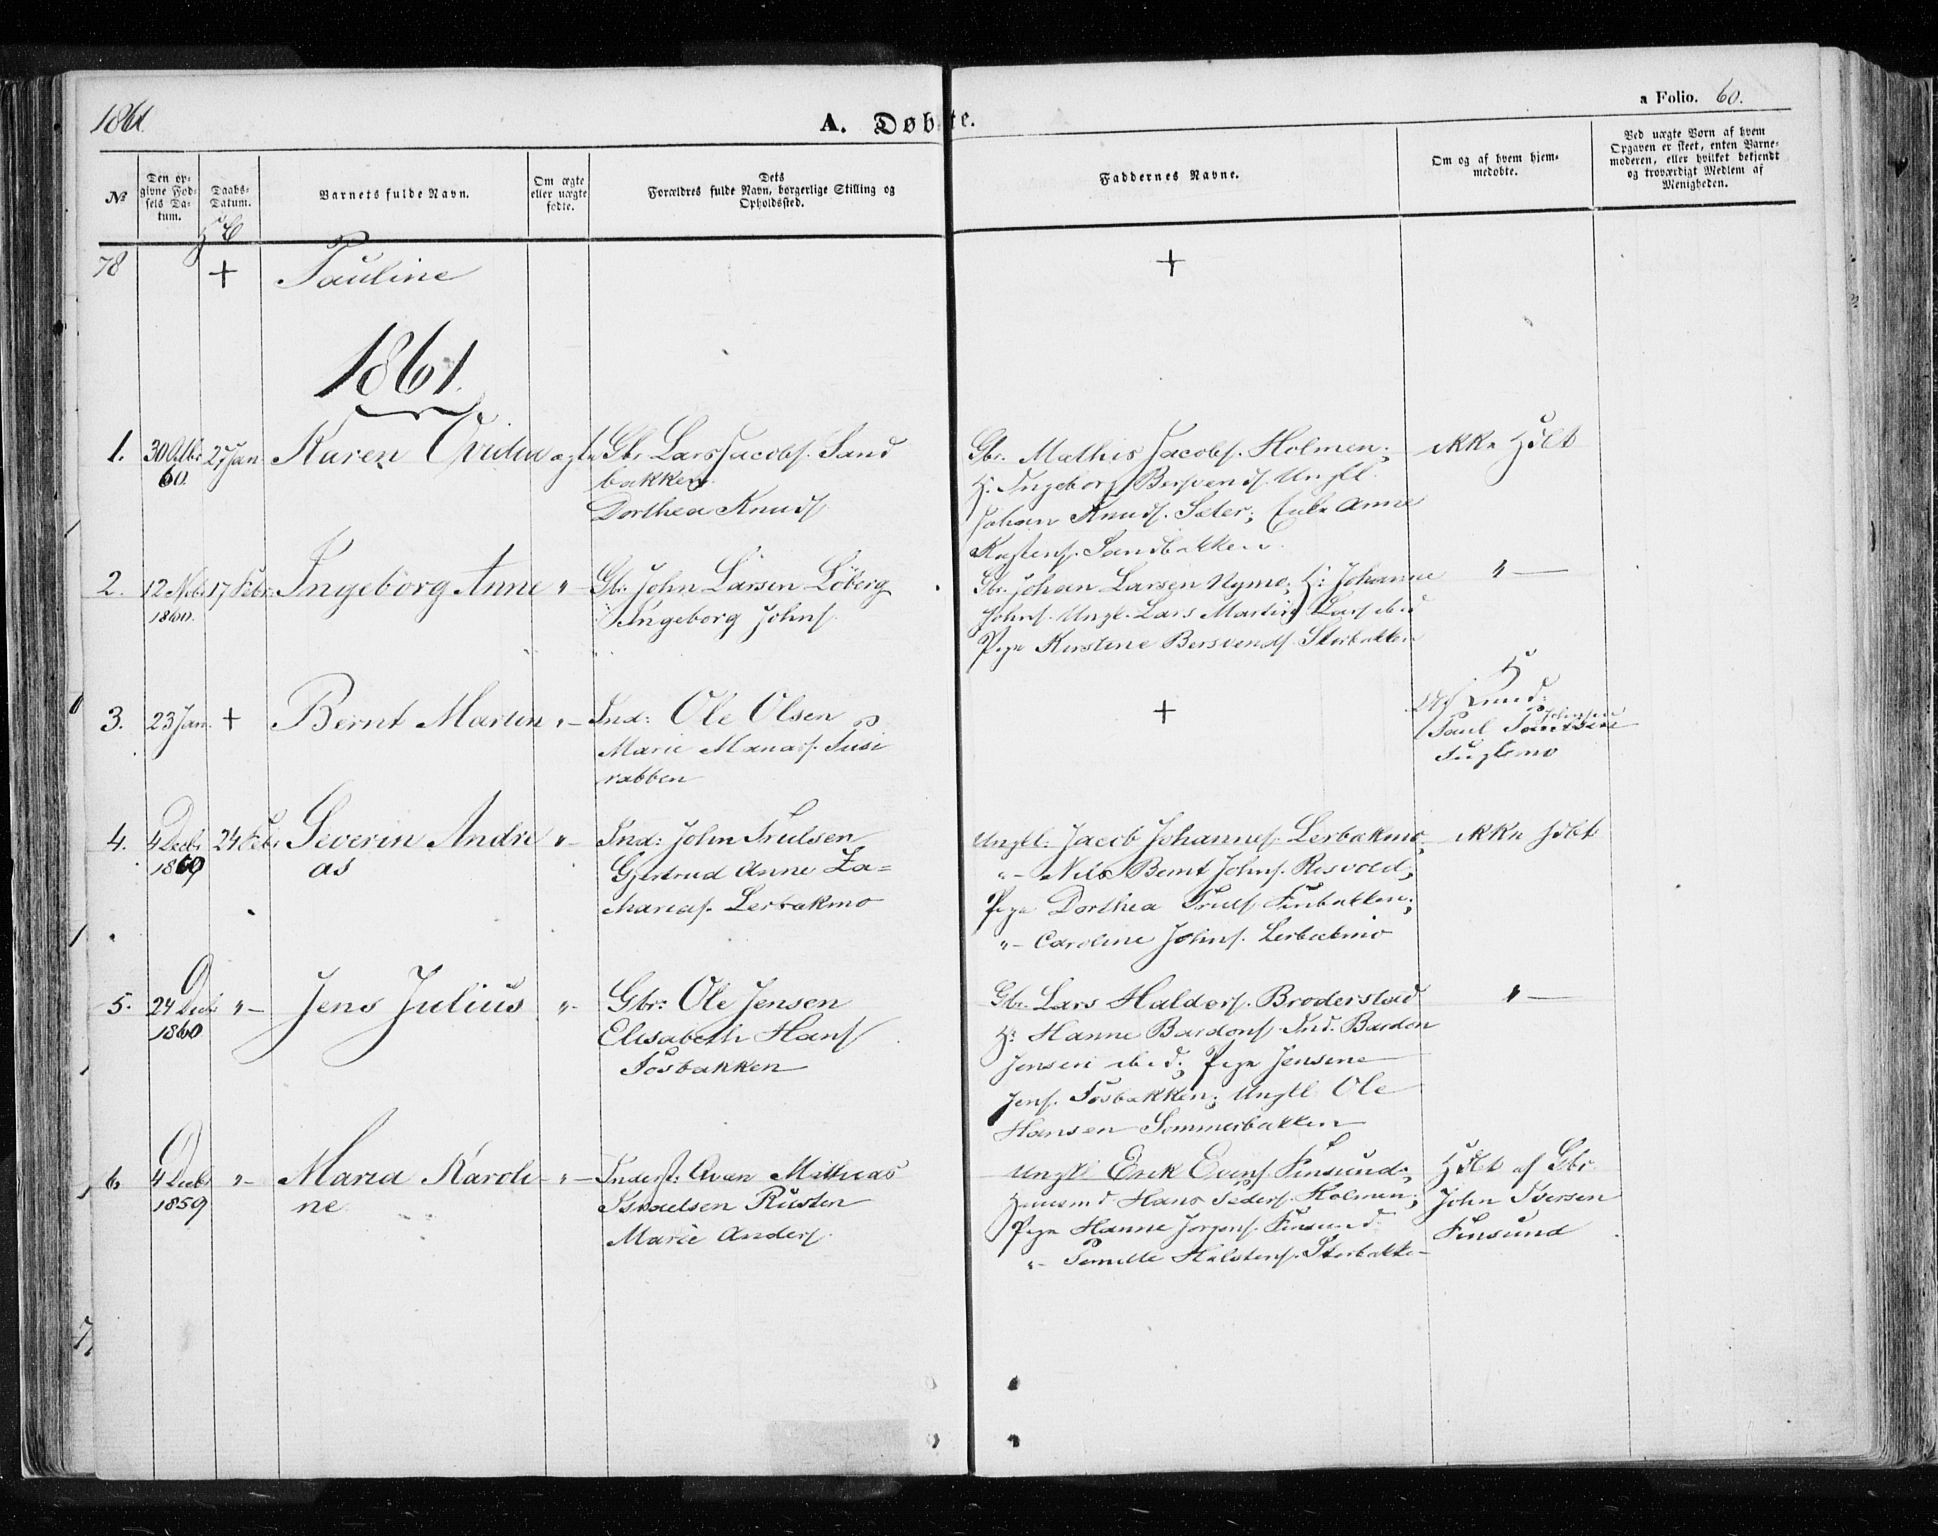 1861
A. Døbte.
a Folio. 60.
No
Den opgivne Fødsels Datum.
Daabs-Datum.
Barnets fulde Navn.
Om ægte eller uægte fødte.
Dets Forældres fulde Navn, borgerlige Stilling og Opholdssted.
Faddernes Navne.
Om og af hvem hjemmedøbte.
Ved uægte Børn af hvem Opgaven er skeet, enten Barnemoderen, eller hvilket bekjendt og troværdigt Medlem af Menigheden.
78
+
Pauline
+
1861.
1.
30 Octbr
60.
27 Jan
Karen Ovidia
ægte
Gbr Lars Jacobs. Sand
bakken
Dorthea Knuds
Gbr. Mathis Jacobs. Holmen;
H. Ingeborg Bersvends. Ungkl.
Johan Knuds. Sæter; Enke Anne
Sandbakken.
ikke Hdbt
2.
12 Novbr
1860.
17 Febr.
Ingeborg Anne
"–
Gbr. John Larsen Löberg
Ingeborg Johns.
Gbr. Johan Larsen Nymo; H: Johanne
Johns. Ungk. Lars Martin Lars. ibid
Pige Kirstine Bersvends. Storbakken
"–
3.
23 Jan.
+
Bernt Martin
"–
Ind: Ole Olsen
Marie Manas. Tusi
rabben
+
H
Paul Johnsen
Fuglemo
4.
4 Decbr
1860
24 Febr
Severin Andre
as
"–
Ind: John Trulsen
Gjertrud Anne Za=
charias. Lerbakmo
Ungkl: Jacob Johannes. Lerbakmo;
"– Nils Bernt Johns. Resvold;
Pige Dorthea Truls. Finbakken;
"– Caroline Johns. Lerbakmo
ikke Hdbt
5.
24 Decbr
1860
"–
Jens Julius
"–
Gbr: Ole Jensen
Elisabeth Hans
Fosbakken
Gbr. Lars Haldors. Broderstad
H: Hanne Bardons. Ind. Bardon
Jensen ibid; Pige Jensine
Jens. Fosbakken; Ungkl Ole
Hansen Sommerbakken
"–
6.
4 Decbr
1859
"–
Maria Karoli-
ne
"–
Inderst: Mathias
Ismaelsen Rusten
Marie Anders.
Ungkl Erik Evens. Finsund;
Huusmd Hans Peders. Holmen;
Pige Hanne Jørgens. Finsund
"– Pernille Halstens. Storbakke–
Hdbt af Gbr.
John Iversen
Finsund